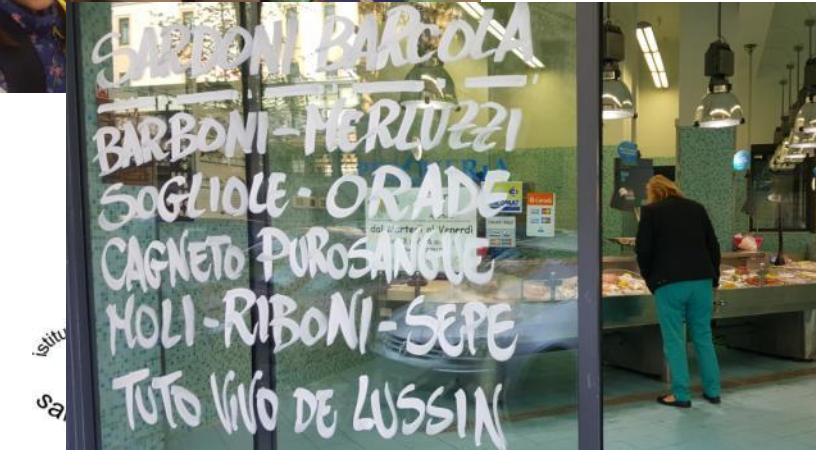 SARDONI BARCOLA
BARBONI-MERLUZZI
SOGLIOLE-ORADE
CAGNETO PUROSANGUE
MOLI-RIBONI-SEPE
TUTO VIVO DE LUSSIN
dal Martedì al Venerdì
istitu
sa